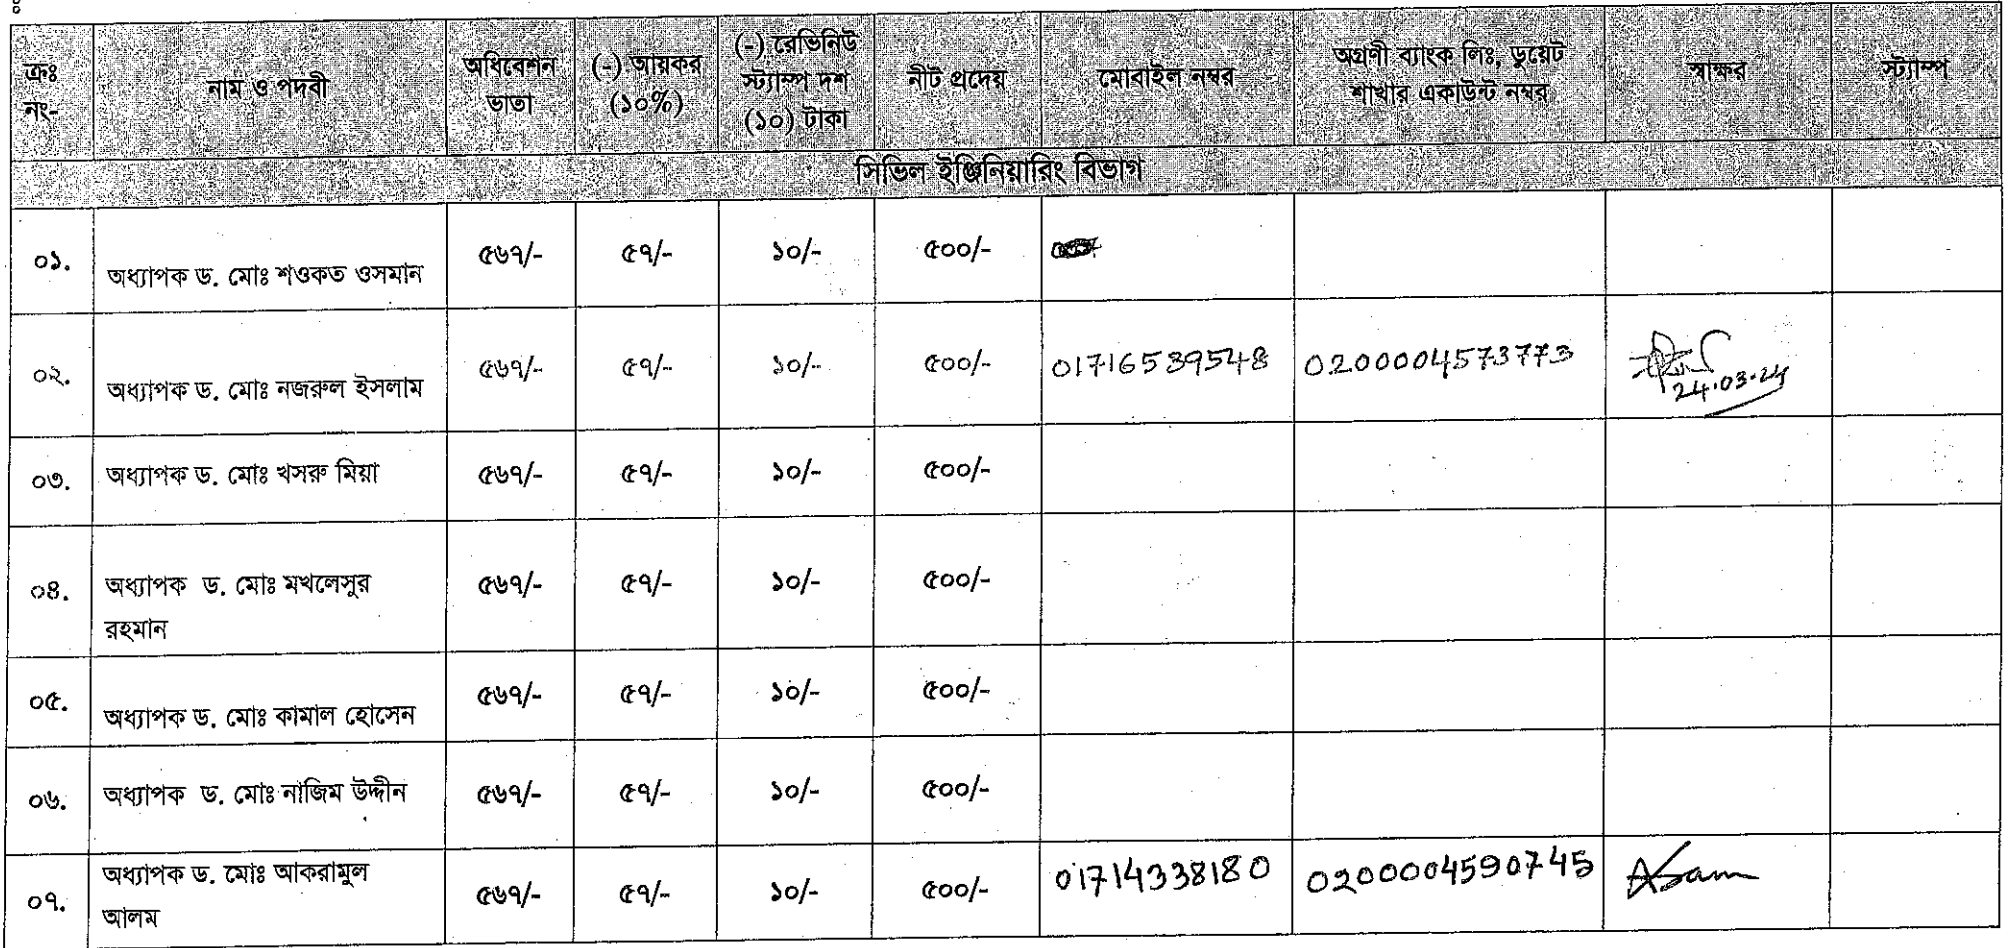 ক্রঃ নং- নাম ও পদবী অধিবেশন ভাতা (-) আয়কর (১০%) (-) রেভিনিউ স্ট্যাম্প দশ (১০) টাকা নীট প্রদেয় মোবাইল নম্বর অগ্রণী ব্যাংক লিঃ, ডুয়েট শাখার একাউন্ট নম্বর স্বাক্ষর স্ট্যাম্প
সিভিল ইঞ্জিনিয়ারিং বিভাগ
০১. অধ্যাপক ড. মোঃ শওকত ওসমান ৫৬৭/- ৫৭/- ১০/- ৫০০/-
০২. অধ্যাপক ড. মোঃ নজরুল ইসলাম ৫৬৭/- ৫৭/- ১০/- ৫০০/- 01716539548 0200004573773 24.03.24
০৩. অধ্যাপক ড. মোঃ খসরু মিয়া ৫৬৭/- ৫৭/- ১০/- ৫০০/-
০৪. অধ্যাপক ড. মোঃ মখলেসুর রহমান ৫৬৭/- ৫৭/- ১০/- ৫০০/-
০৫. অধ্যাপক ড. মোঃ কামাল হোসেন ৫৬৭/- ৫৭/- ১০/- ৫০০/-
০৬. অধ্যাপক ড. মোঃ নাজিম উদ্দীন ৫৬৭/- ৫৭/- ১০/- ৫০০/-
০৭. অধ্যাপক ড. মোঃ আকরামুল আলম ৫৬৭/- ৫৭/- ১০/- ৫০০/- 01714338180 0200004590745